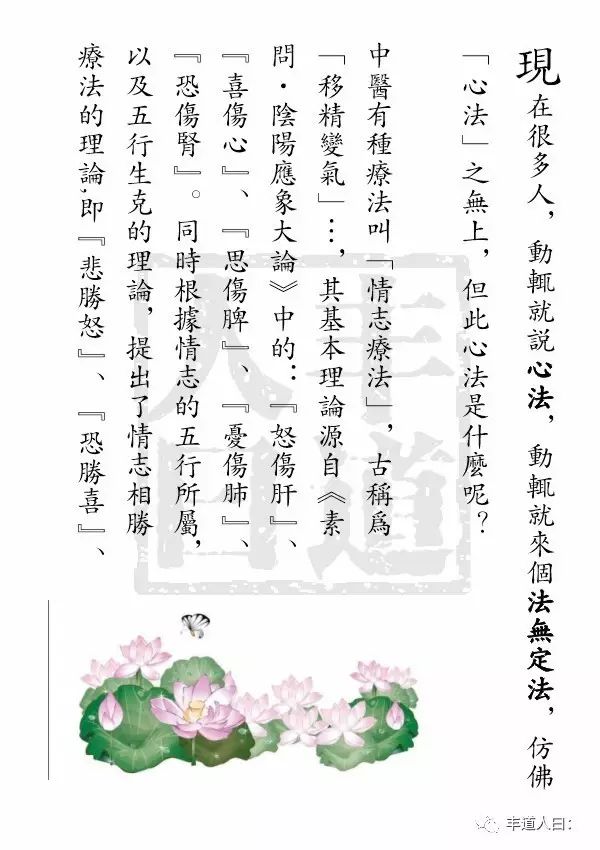 現在很多人，動輒就説心法，動輒就來個法無定法，仿佛
「心法」之無上，但此心法是什麼呢？
中醫有種療法叫「情志療法」，古稱爲
「移精變氣」…，其基本理論源自《素
問·陰陽應象大論》中的：『怒傷肝』、
『喜傷心』、『思傷脾』、『憂傷肺』、
『恐傷腎』。同時根據情志的五行所屬，
以及五行生克的理論，提出了情志相勝
療法的理論，即『悲勝怒』、『恐勝喜』、
丰道人曰
丰道人曰：